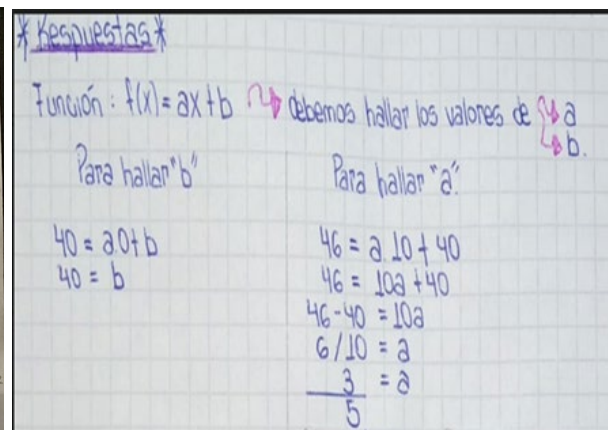 *Respuestas*
Función: f(x) = ax+b debemos hallar los valores de a
b.
Para hallar "b"
40 = a.0+b
40 = b
Para hallar "a".
46 = a.10+40
46 = 10a+40
46-40 = 10a
6/10 = a
3 = a
5